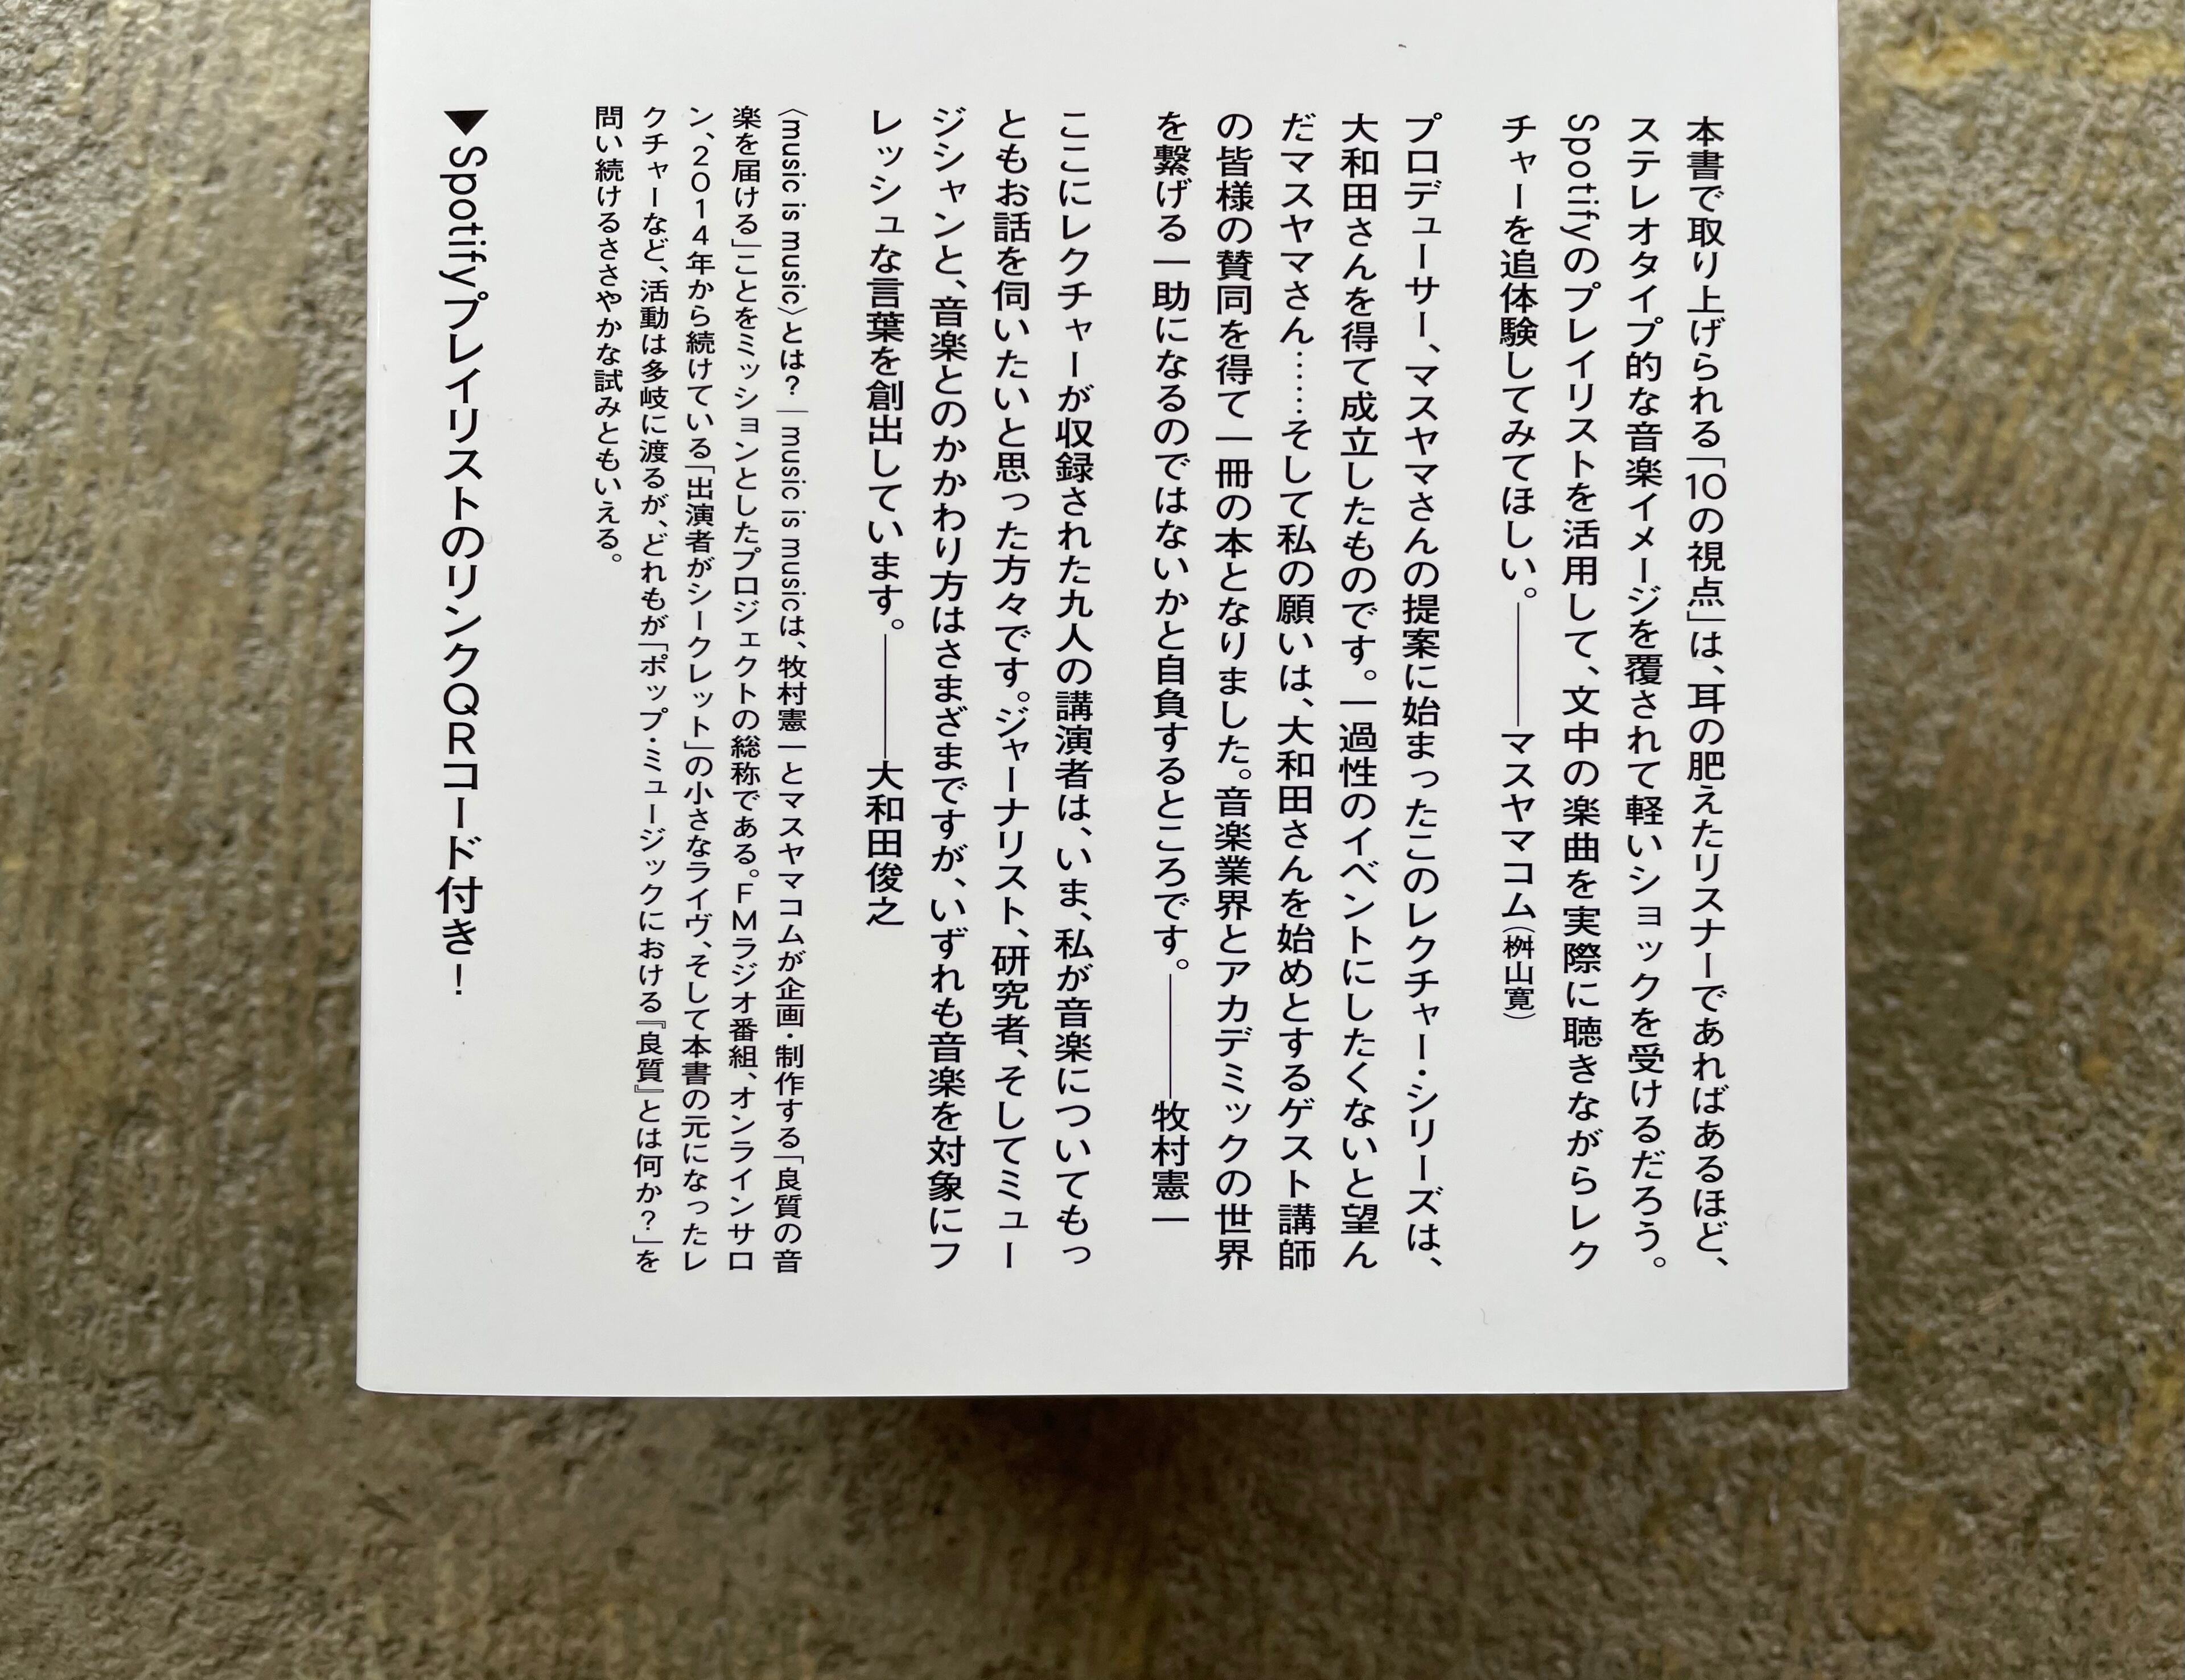 本書で取り上げられる「10の視点」は、耳の肥えたリスナーであればあるほど、
ステレオタイプ的な音楽イメージを覆されて軽いショックを受けるだろう。
Spotifyのプレイリストを活用して、文中の楽曲を実際に聴きながらレク
チャーを追体験してみてほしい。――マスヤマコム(桝山寛)
プロデューサー、マスヤマさんの提案に始まったこのレクチャー・シリーズは、
大和田さんを得て成立したものです。一過性のイベントにしたくないと望ん
だマスヤマさん……そして私の願いは、大和田さんを始めとするゲスト講師
の皆様の賛同を得て一冊の本となりました。音楽業界とアカデミックの世界
を繋げる一助になるのではないかと自負するところです。――牧村憲一
ここにレクチャーが収録された九人の講演者は、いま、私が音楽についてもっ
ともお話を伺いたいと思った方々です。ジャーナリスト、研究者、そしてミュー
ジシャンと、音楽とのかかわり方はさまざまですが、いずれも音楽を対象にフ
レッシュな言葉を創出しています。――大和田俊之
〈music is music〉とは?｜music is musicは、牧村憲一とマスヤマコムが企画・制作する「良質の音
楽を届ける」ことをミッションとしたプロジェクトの総称である。FMラジオ番組、オンラインサロ
ン、2014年から続けている「出演者がシークレット」の小さなライヴ、そして本書の元になったレ
クチャーなど、活動は多岐に渡るが、どれもが「ポップ・ミュージックにおける『良質』とは何か?」を
問い続けるささやかな試みともいえる。
▶Spotifyプレイリストのリンク QRコード付き!